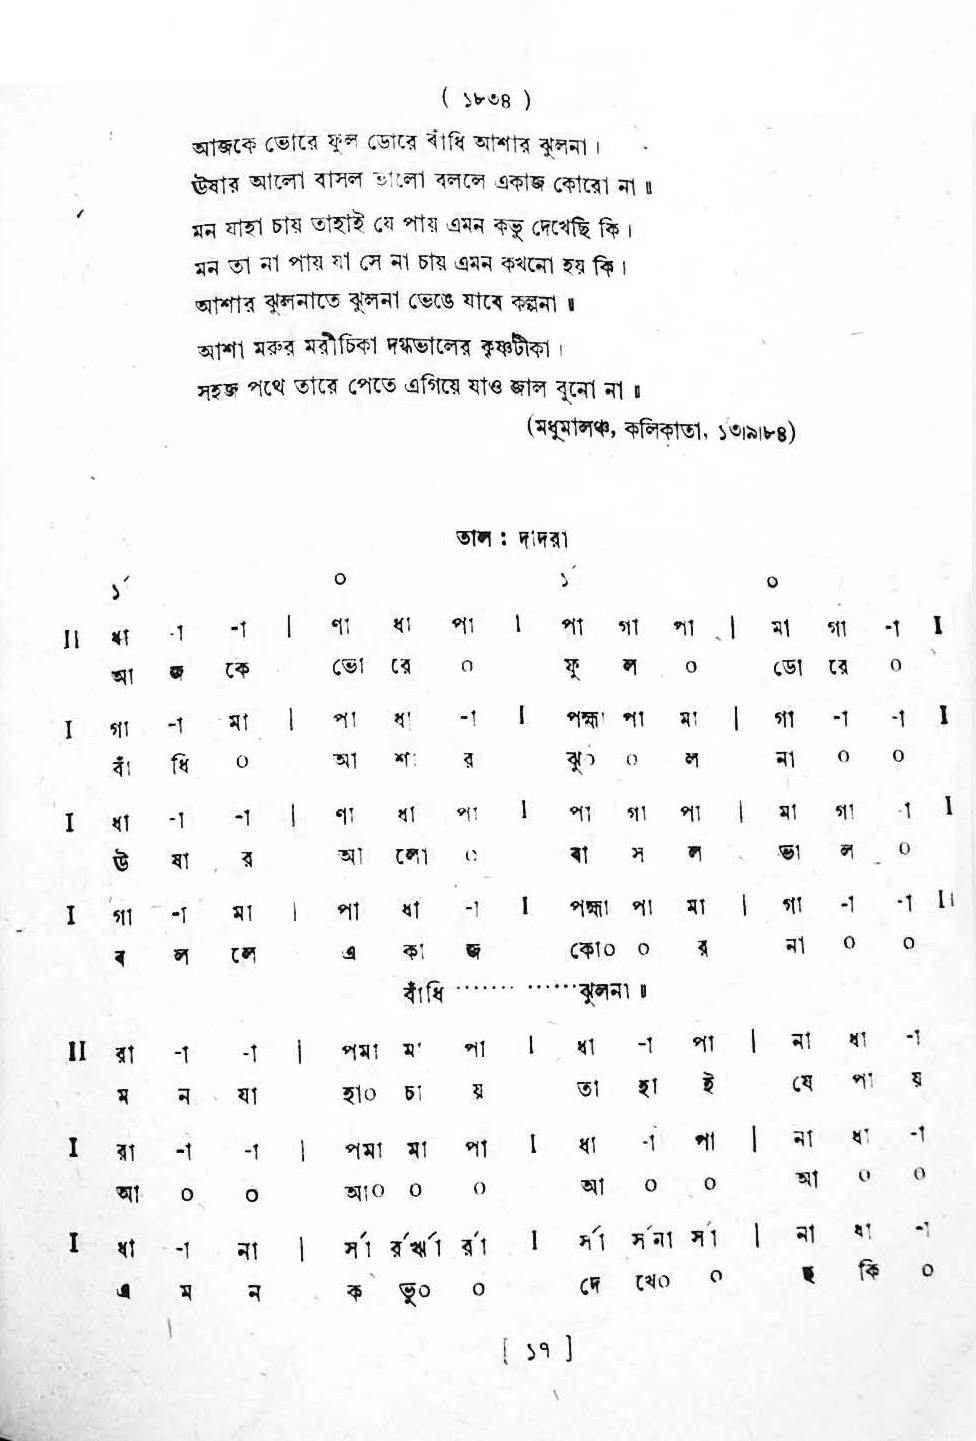 ( ১৮৩৪ )
আজকে ভোরে ফুল ডোরে বাঁধি আশার ঝুলনা।
ঊষার আলো বাসল ভালো বললে একাজ কোরো না॥
মন যাহা চায় তাহাই যে পায় এমন কভু দেখেছি কি।
মন তা না পায় যা সে না চায় এমন কখনো হয় কি।
আশার ঝুলনাতে ঝুলনা ভেঙে যাবে কল্পনা॥
আশা মরুর মরীচিকা দগ্ধভালের কৃষ্ণটীকা।
সহজ পথে তারে পেতে এগিয়ে যাও জাল বুনো না॥
(মধুমালঞ্চ, কলিকাতা, ১৩।৯।৮৪)
তাল : দাদরা
১´ ০ ১´ ০
II ধা -া -া | ণা ধা পা I পা গা পা | মা গা -া I
আ জ কে ভো রে ০ ফু ল ০ ডো রে ০
I গা -া মা | পা ধা -া I পহ্মা পা মা | গা -া -া I
বাঁ ধি ০ আ শা র ঝু০ ০ ল না ০ ০
I ধা -া -া | ণা ধা পা I পা গা পা | মা গা -া I
ঊ ষা র আ লো ০ বা স ল ভা ল ০
I গা -া মা | পা ধা -া I পহ্মা পা মা | গা -া -া II
ব ল লে এ কা জ কো০ ০ র না ০ ০
বাঁধি ············ঝুলনা॥
II রা -া -া | পমা মা পা I ধা -া পা | না ধা -া
ম ন যা হা০ চা য় তা হা ই যে পা য়
I রা -া -া | পমা মা পা I ধা -া পা | না ধা -া
আ ০ ০ আ০ ০ ০ আ ০ ০ আ ০ ০
I ধা -া না | র্সা র্রর্ঋা র্রা I র্সা র্সনা র্সা | না ধা -া
এ ম ন ক ভু০ ০ দে খে০ ০ ছ কি ০
[ ১৭ ]